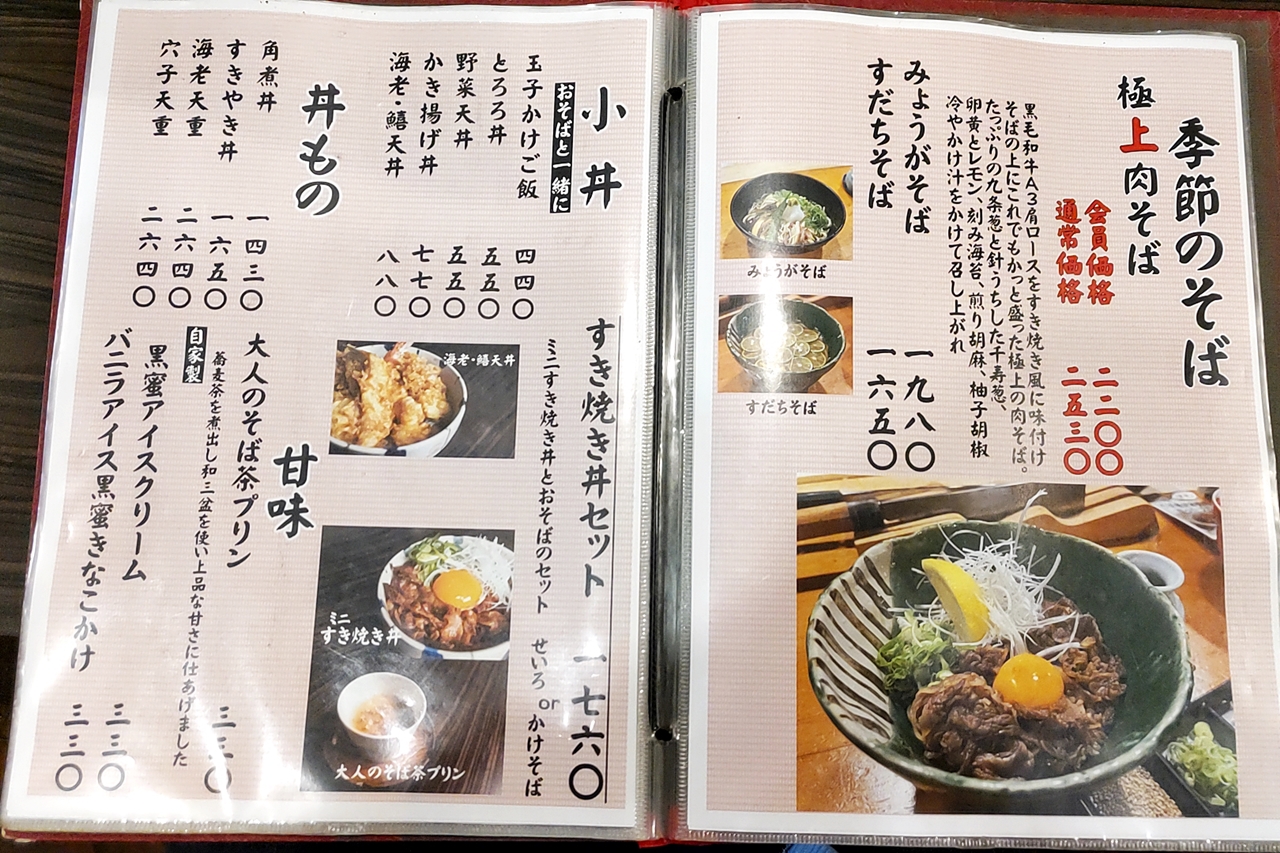 季節のそば
極上肉そば
会員価格 二二〇〇
通常価格 二五三〇
黒毛和牛A3肩ロースをすき焼き風に味付け
そばの上にこれでもかっと盛った極上の肉そば。
たっぷりの九条葱と針うちした千寿葱、
卵黄とレモン、刻み海苔、煎り胡麻、柚子胡椒
冷やかけ汁をかけて召し上がれ
みょうがそば 一九八〇
すだちそば 一六五〇
みょうがそば
すだちそば
小丼
おそばと一緒に
玉子かけご飯 四四〇
とろろ丼 五五〇
野菜天丼 五五〇
かき揚げ丼 七七〇
海老・鱚天丼 八八〇
丼もの
角煮丼 一四三〇
すきやき丼 一六五〇
海老天重 二六四〇
穴子天重 二六四〇
すき焼き丼セット 一七六〇
ミニすき焼き丼とおそばのセット せいろ or かけそば
海老・鱚天丼
ミニ
すき焼き丼
大人のそば茶プリン
甘味
大人のそば茶プリン 三三〇
蕎麦茶を煮出し和三盆を使い上品な甘さに仕あげました
自家製
黒蜜アイスクリーム 三三〇
バニラアイス黒蜜きなこかけ 三三〇